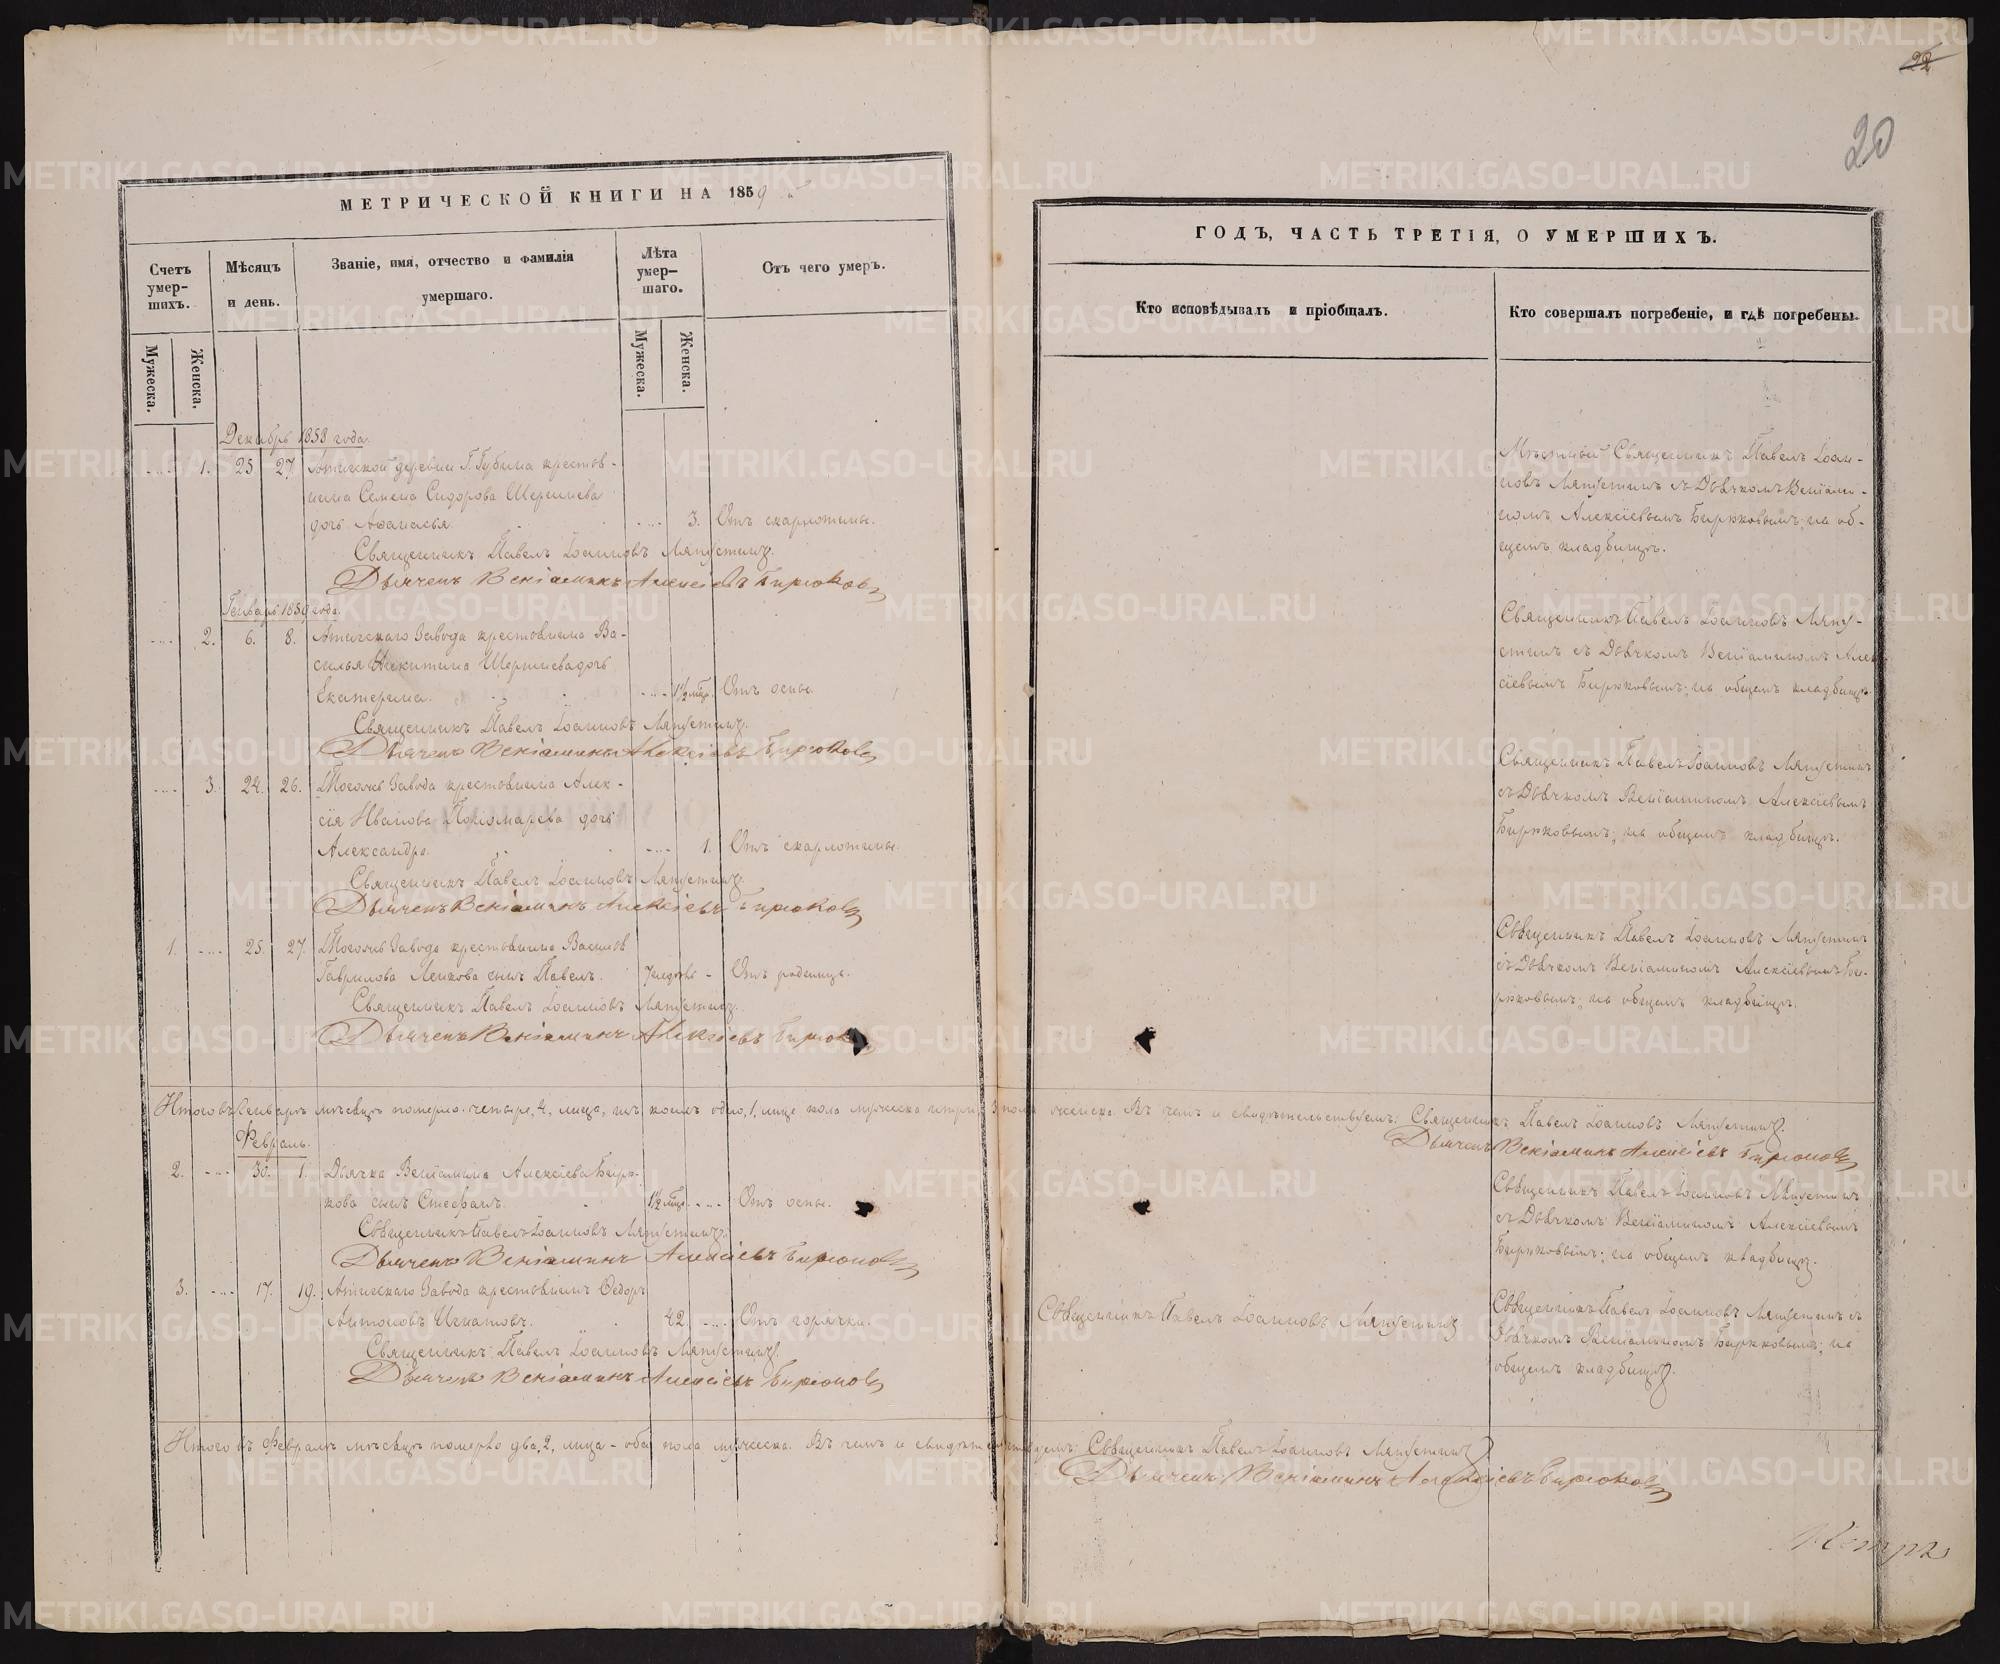 22
20
МЕТРИЧЕСКОЙ КНИГИ НА 1859
ГОДЪ, ЧАСТЬ ТРЕТІЯ, О УМЕРШИХЪ.
Счетъ умер-шихъ.
Мѣсяцъ и день.
Званіе, имя, отчество и фамилія умершаго.
Лѣта умер-шаго.
Отъ чего умеръ.
Кто исповѣдывалъ и пріобщалъ.
Кто совершалъ погребеніе, и гдѣ погребены.
Мужеска.
Женска.
Мужеска.
Женска.
Декабрь 1858 года.
1. 25. 27. Атигской деревни Г. Губина крестья-
нина Семена Сидорова Шершнева
дочь Афанасья. 3. Отъ скарлотины.
Священникъ Павелъ Іоанновъ Ляпустинъ.
Дьячекъ Веніаминъ Алексіевъ Бирюковъ
Мѣстный Священникъ Павелъ Іоан-
новъ Ляпустинъ съ Дьячкомъ Веніами-
номъ Алексіевымъ Бирюковымъ; на об-
щемъ кладбищѣ.
Генварь 1859 года.
2. 6. 8. Атигскаго Завода крестьянина Ва-
силья Никитина Шершнева дочь
Екатерина. 1½ мѣс. Отъ оспы.
Священникъ Павелъ Іоанновъ Ляпустинъ.
Дьячекъ Веніаминъ Алексіевъ Бирюковъ
Священникъ Павелъ Іоанновъ Ляпу-
стинъ съ Дьячкомъ Веніаминомъ Алек-
сіевымъ Бирюковымъ; на общемъ кладбищѣ.
3. 24. 26. Тогоже Завода крестьянина Алек-
сія Иванова Пономарева дочь
Александра. 1. Отъ скарлотины.
Священникъ Павелъ Іоанновъ Ляпустинъ.
Дьячекъ Веніаминъ Алексіевъ Бирюковъ
Священникъ Павелъ Іоанновъ Ляпустинъ
съ Дьячкомъ Веніаминомъ Алексіевымъ
Бирюковымъ; на общемъ кладбищѣ.
1. 25. 27. Тогоже Завода крестьянина
Гаврилова сынъ Павелъ. Отъ родимца.
Священникъ Павелъ Іоанновъ Ляпустинъ.
Дьячекъ Веніаминъ Алексіевъ
Священникъ Павелъ Іоанновъ Ляпустинъ
съ Дьячкомъ Веніаминомъ Алексіевымъ Би-
рюковымъ; на общемъ кладбищѣ.
Итого въ Генварѣ мѣсяцѣ померло четыре, 4, лица, въ чемъ и свидѣтельствуемъ: Священникъ Павелъ Іоанновъ Ляпустинъ.
Дьячекъ Веніаминъ Алексіевъ Бирюковъ
Февраль.
2. 30. 1. Дьячка Веніамина Алексіева Бирю-
кова сынъ Стефанъ. 1½ мѣс. Отъ оспы.
Священникъ Павелъ Іоанновъ Ляпустинъ.
Дьячекъ Веніаминъ Алексіевъ Бирюковъ
Священникъ Павелъ Іоанновъ Ляпустинъ
съ Дьячкомъ Веніаминомъ Алексіевымъ
Бирюковымъ; на общемъ кладбищѣ.
3. 17. 19. Атигскаго Завода крестьянинъ Ѳедоръ
Антоновъ Игнатовъ. 42. Отъ горячки.
Священникъ Павелъ Іоанновъ Ляпустинъ.
Дьячекъ Веніаминъ Алексіевъ Бирюковъ
Священникъ Павелъ Іоанновъ Ляпустинъ
Священникъ Павелъ Іоанновъ Ляпустинъ съ
Дьячкомъ Веніаминомъ Бирюковымъ; на
общемъ кладбищѣ.
Итого въ Февралѣ мѣсяцѣ померло два, 2, лица - оба пола мужеска. Въ чемъ и свидѣтельствуемъ: Священникъ Павелъ Іоанновъ Ляпустинъ
Дьячекъ Веніаминъ Алексіевъ Бирюковъ
METRIKI.GASO-URAL.RU